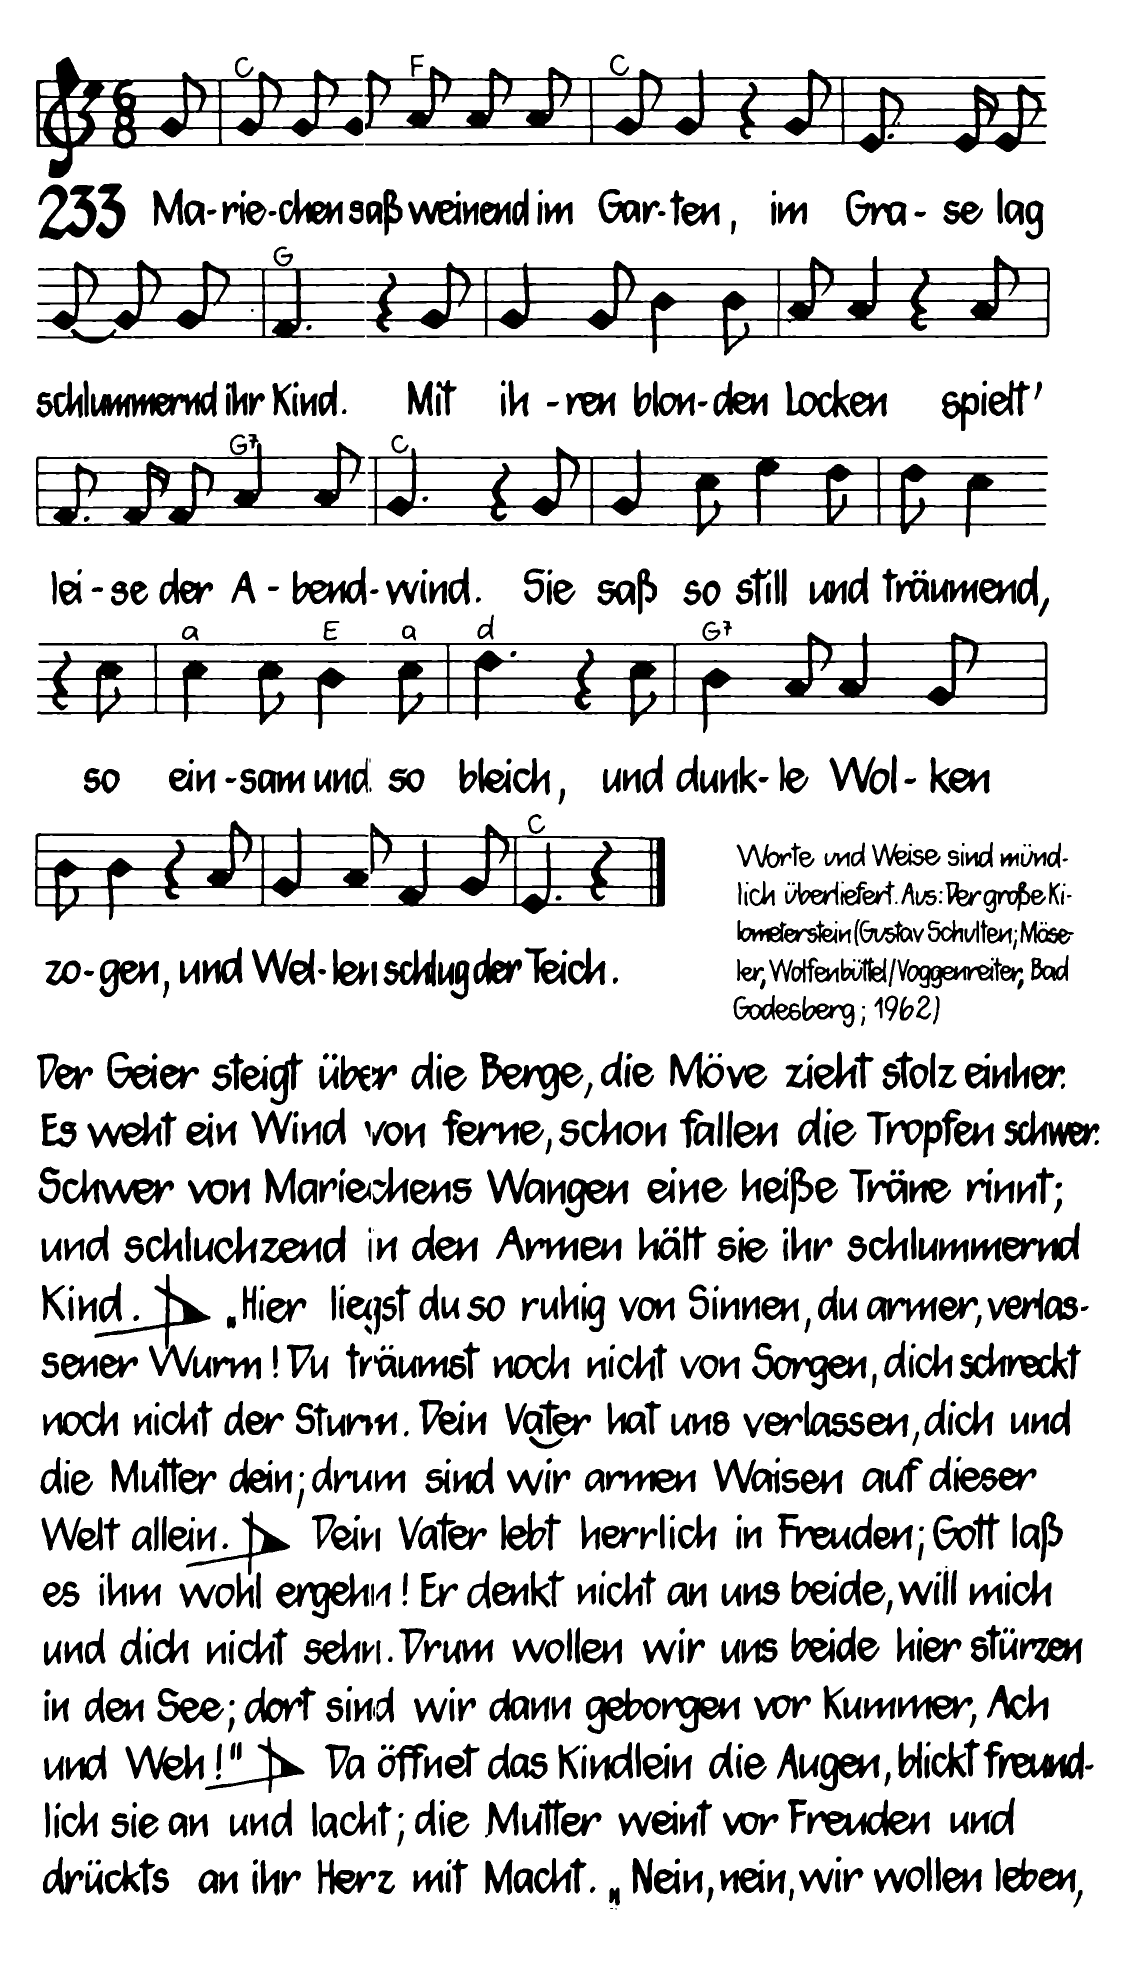 C F C
6
8
233 Ma-rie-chen saß weinend im Gar-ten, im Gra-se lag
G
schlummernd ihr Kind. Mit ih-ren blon-den Locken spielt'
G7 C
lei-se der A-bend-wind. Sie saß so still und träumend,
a E a d G7
so ein-sam und so bleich, und dunk-le Wol-ken
C
zo-gen, und Wel-len schlug der Teich.
Worte und Weise sind münd-
lich überliefert. Aus: Der große Ki-
lometerstein (Gustav Schulten; Möse-
ler, Wolfenbüttel/Voggenreiter, Bad
Godesberg; 1962)
Der Geier steigt über die Berge, die Möve zieht stolz einher.
Es weht ein Wind von ferne, schon fallen die Tropfen schwer.
Schwer von Mariechens Wangen eine heiße Träne rinnt;
und schluchzend in den Armen hält sie ihr schlummernd
Kind. „Hier liegst du so ruhig von Sinnen, du armer, verlas-
sener Wurm! Du träumst noch nicht von Sorgen, dich schreckt
noch nicht der Sturm. Dein Vater hat uns verlassen, dich und
die Mutter dein; drum sind wir armen Waisen auf dieser
Welt allein. Dein Vater lebt herrlich in Freuden; Gott laß
es ihm wohl ergehn! Er denkt nicht an uns beide, will mich
und dich nicht sehn. Drum wollen wir uns beide hier stürzen
in den See; dort sind wir dann geborgen vor Kummer, Ach
und Weh!" Da öffnet das Kindlein die Augen, blickt freund-
lich sie an und lacht; die Mutter weint vor Freuden und
drückts an ihr Herz mit Macht. „Nein, nein, wir wollen leben,